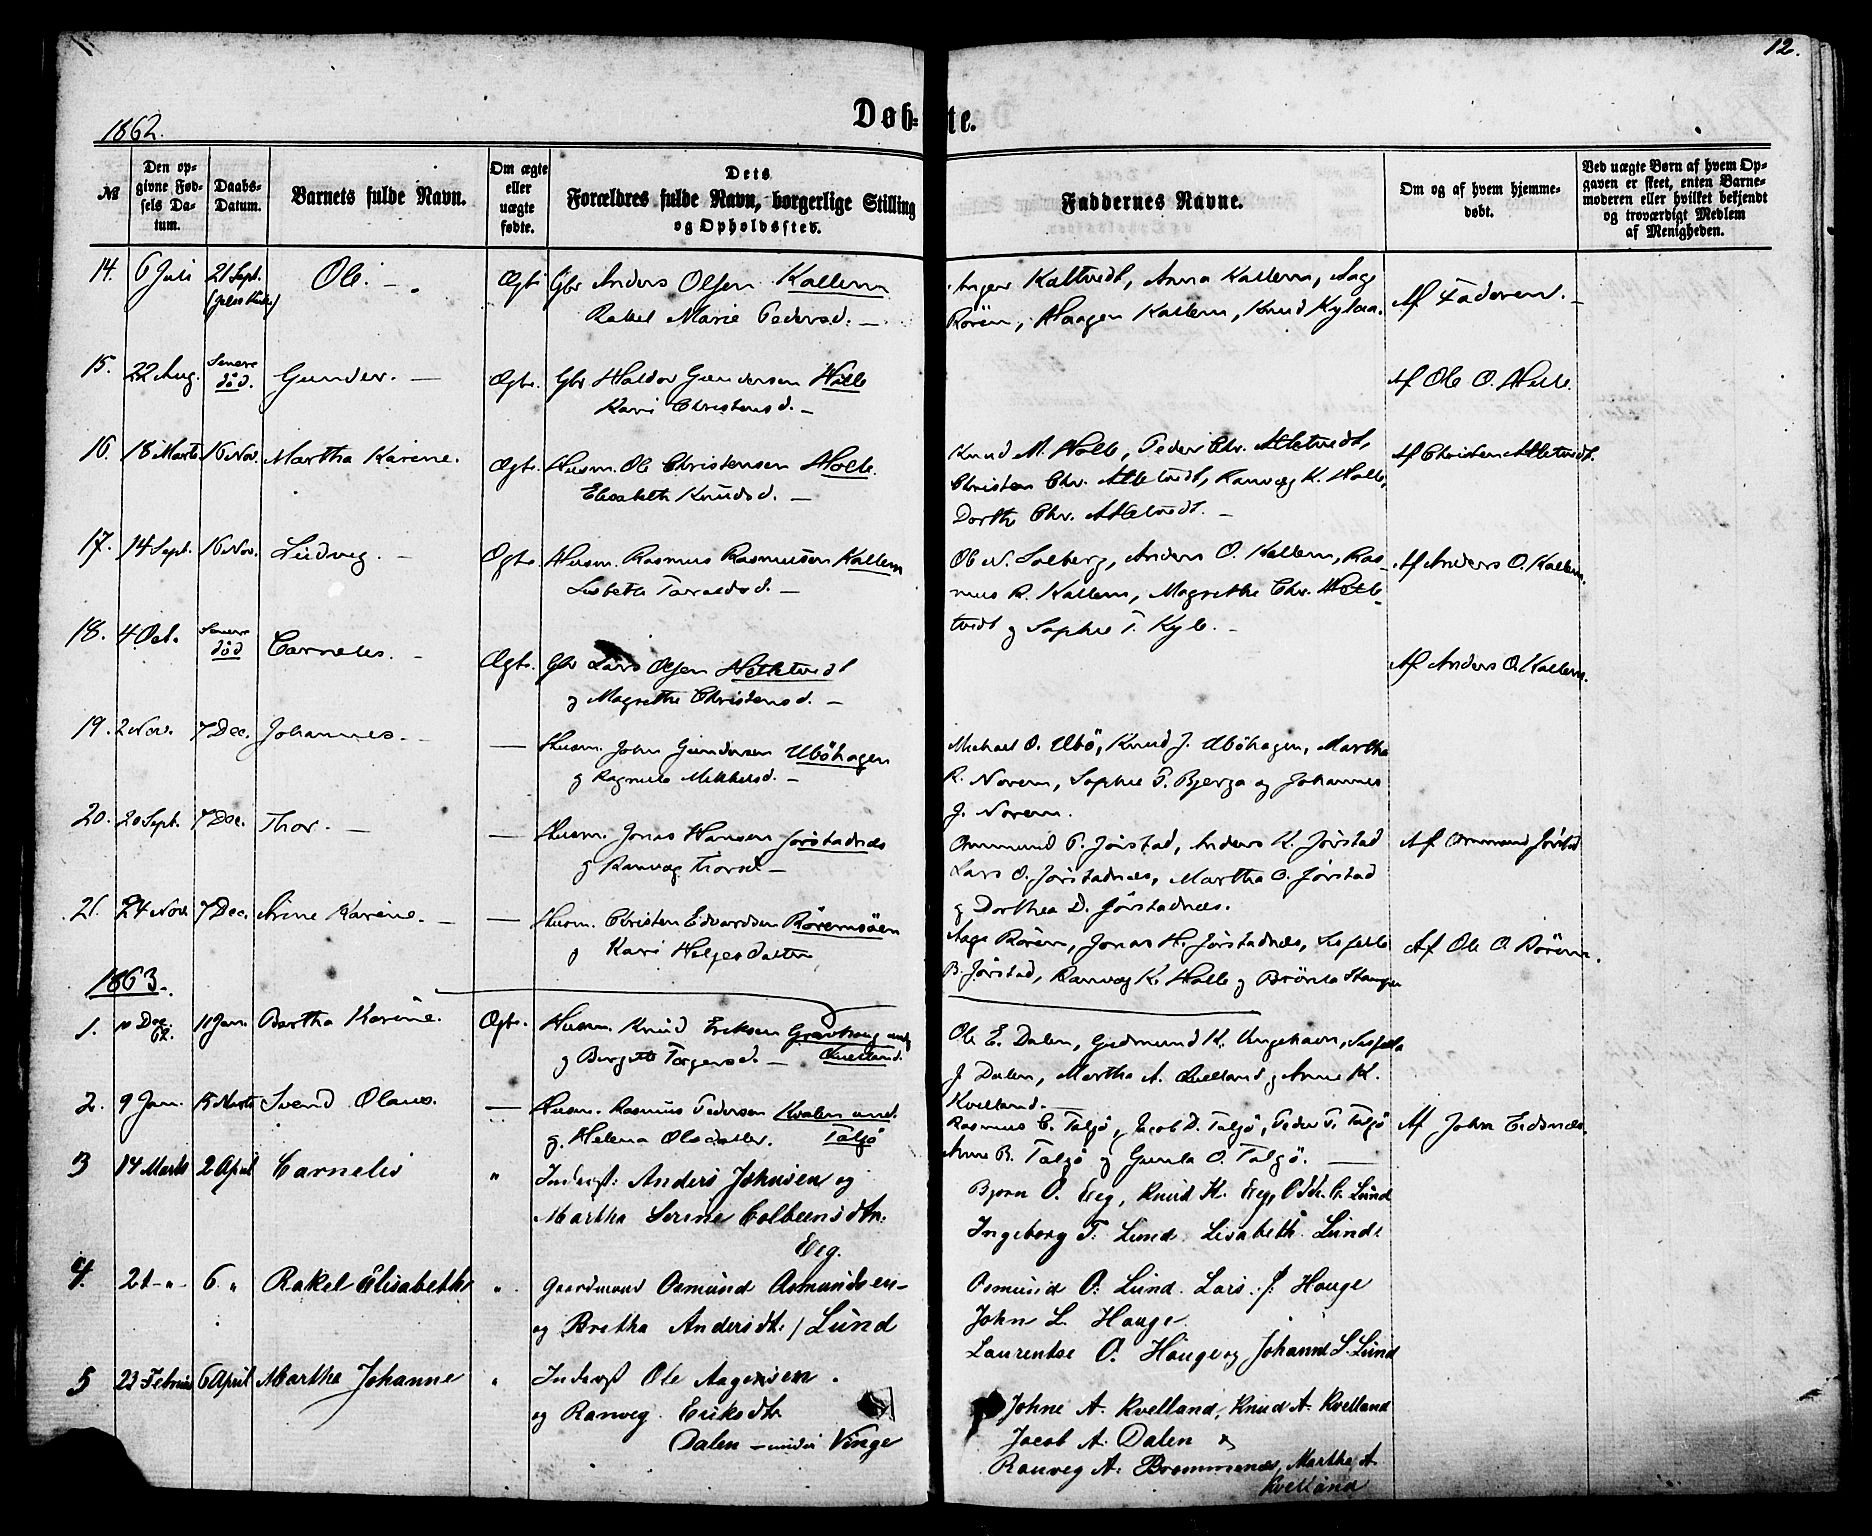 12.
1862.
Døb-te.
№
Den op-
givne Fød-
sels Da-
tum.
Daabs-
Datum.
Barnets fulde Navn.
Om ægte
eller
uægte
fødte.
Dets
Forældres fulde Navn, borgerlige Stilling
og Opholdssted.
Faddernes Navne.
Om og af hvem hjemme-
døbt.
Ved uægte Børn af hvem Op-
gaven er skeet, enten Barne-
moderen eller hvilket bekjendt
og troværdigt Medlem
af Menigheden.
14. 6 Juli 21 Sept. Ole. Ægte Gbr Anders Olsen Kallem
Rakel Marie Pedersd.
Kaltvedt, Anna Kallem, Aage
Rörem, Haagen Kallem, Knud Kylaa.
Af Faderen.
15. 22 Aug. Senere
död. Gunder. Ægte. Gbr Haldor Gundersen Holle
Kari Christensd.
Af Ole O. Helle.
16. 18 Marts 16 Nov. Martha Karine. Ægte. Husm. Ole Christensen Holle.
Elisabeth Knudsd.
Knud M. Holle, Peder Chr.
Christen Chr. Ranvæg K. Holle,
Dorthe Chr.
Af Christen
17. 14 Sept. 16 Nov. Ludvig. Ægte Husm. Rasmus Rasmussen Kallem
Lisbeth Taraldsd.
Ole N. Solberg, Anders O. Kallem, Ras-
mus R. Kallem, Magrethe Chr.
tvedt og Sophie T. Kyle.
Af Anders O. Kallem.
18. 4 Oct. Senere
död Cornelius. Ægte. Gbr Lars Olsen Helletvedt
og Magrethe Christensd.
Af Anders O. Kallem.
19. 2 Nov. 7 Dec. Johannes. — Husm. John Gundersen Uböhagen
og Ragnele Mikkelsd.
Michael O. Ubö, Knud J. Uböhagen, Martha
R. Norem, Sophie P. Bjerga og Johannes
J. Norem.
20. 20 Sept. 7 Dec. Thor. — Husm. Jonas Hansen Jörstadnæs
og Ranvæg Thorsd.
Ommund P. Jörstad, Anders K. Jörstad
Lars O. Jörstadnæs, Martha O. Jörstad
og Dorthea D. Jörstadnæs.
Af Ommund Jörstad
21. 24 Nov. 7 Dec. Anne Karine. — Husm. Christen Edvardsen Röremsöen
og Kari Helgesdatter
Aage Rörem, Jonas H. Jörstadnæs,
B. Jörstad, Ranvæg K. Holle og
Af Ole O. Rörem.
1863.
1. Dec.
62. 11 Jan. Bertha Karine. Ægte. Husm. Knud Eriksen
og Birgitte Torgersd. Qvelland.
Ole E. Dalen, Gudmund K.
J. Dalen, Martha A. Qvelland og Anne K.
Kvelland.
2. 9 Jan. 15 Marts Svend Olaus. — Husm. Rasmus Pedersen Kvalen und.
og Helena Olsdatter. Talgö
Rasmus C. Talgö, Jacob D. Talgö, Peder T. Talgö
Anne B. Talgö og Gunla O. Talgö.
Af John Eidsnæs.
3 14 Marts 2 April Cornelis " Inderst: Anders Johnsen og
Martha Serine Colbeensdtr.
Eeg.
Bjørn O. Eeg, Knud K. Eeg, C. Lund
Ingeborg T. Lund. Lisabeth Lunde
4. 21 - " 6 " Rakel Elisabeth " Gaardmand Osmund Asmundsen
og Bretha Andersdtr / Lund
Osmund O. Lund. Lars J. Hauge
John L. Hauge
Laurentse O. Hauge og Johanne S. Lund
5 23 Februar 6 April Martha Johanne " Inderst Ole Aagensen
og Ranveg Eriksdtr
Dalen — under Vinge
Johne A. Kvelland, Knud A. Kvelland
Jacob A. Dalen &
Ranveg A. Brommenæs, Martha A
Kvelland